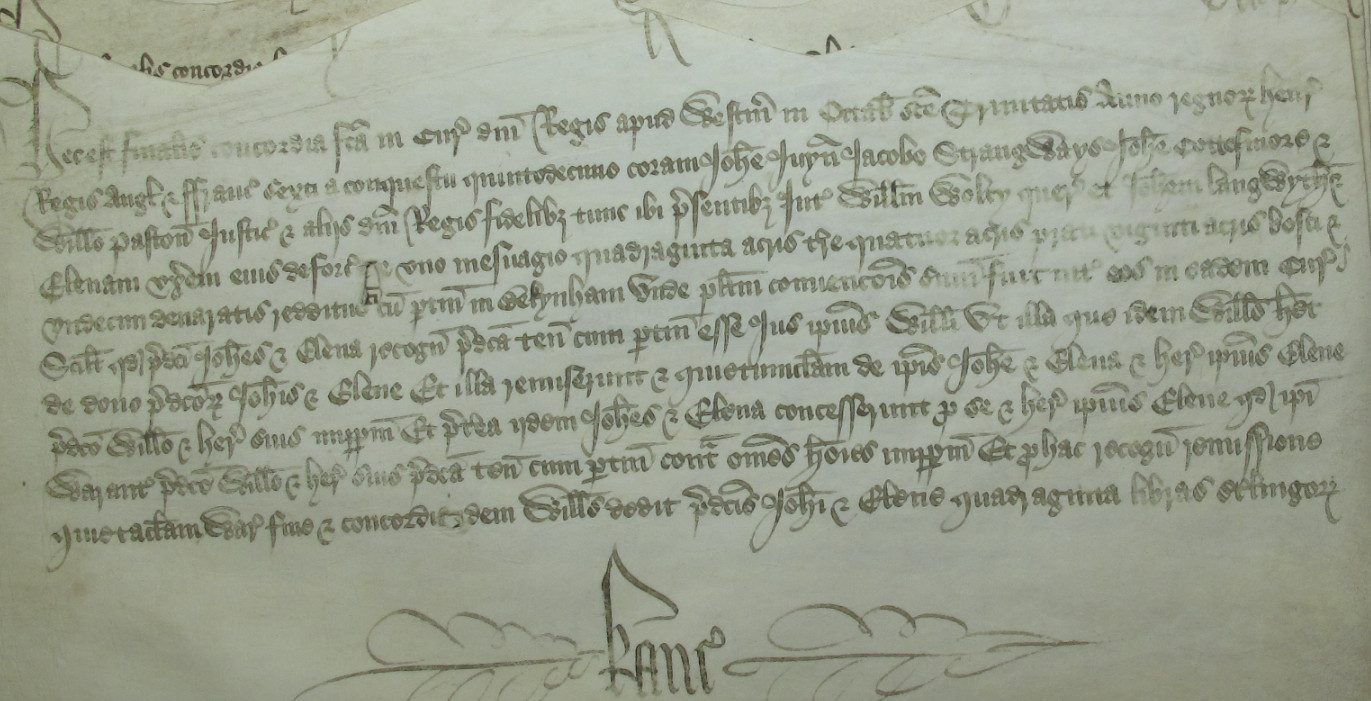 alis concordia
Hec est finalis concordia fca in Cur dni Regis apud Westm in Octab sce Trinitatis Anno regnor Henr
Regis Angl & ffranc sexti a conquestu quintodecimo coram Johe Juyn Jacobo Strangways Johe Cottesmore &
Willo Paston Justic & alijs dni Regis fidelibz tunc ibi psentibz Int Willm Wolcy quer et Johem Langwyth &
Elenam uxem eius deforc de uno mesuagio quadraginta acris tre quatuor acris prati viginti acris bosci &
undecim denaratis redditus cu ptin in Wekynham Unde plitm convencois sum fuit int eos in eadem Cur
Scilt qd pdci Johes & Elena recogn pdca ten cum ptin esse Jus ipius Willi Ut illa que idem Wills het
de dono pdcor Johis & Elene Et illa remiserunt & quietumclam de ipis Johe & Elena & her ipius Elene
pdco Willo & her suis imppm Et ptea ijdem Johes & Elena concesserunt p se & her ipius Elene qd ipi
Warant pdco Willo & her suis pdca ten cum ptin cont omes hoies imppm Et p hac recogn remissione
quietaclam War fine & concordia idem Wills dedit pdcis Johi & Elene quadraginta libras stlingor
Kanc